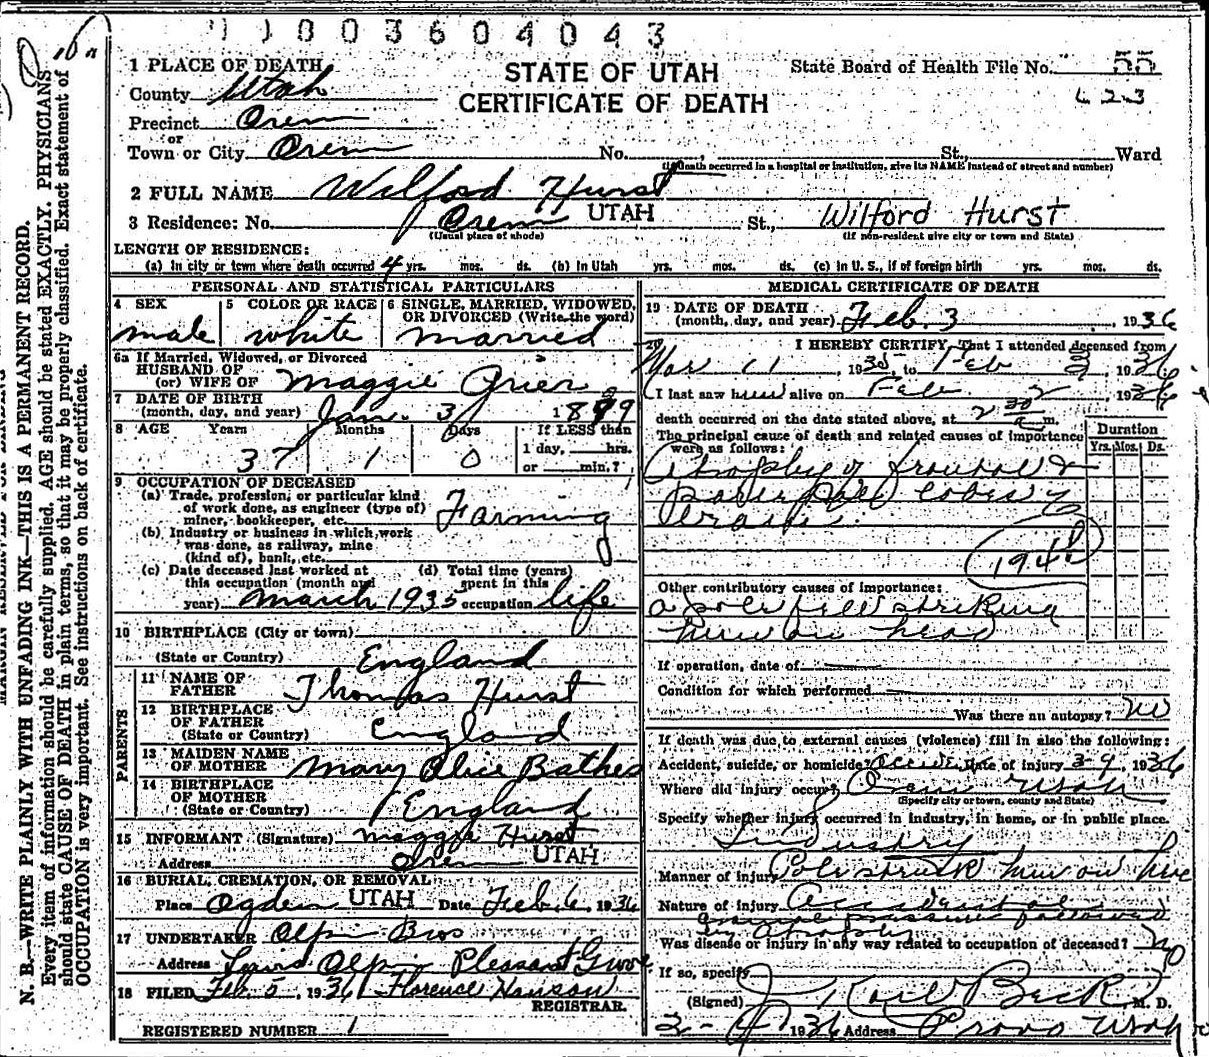 1003604043
1 PLACE OF DEATH
STATE OF UTAH
CERTIFICATE OF DEATH
State Board of Health File No. 55
423
County Utah
Precinct Orem
or
Town or City Orem No. , St., Ward
(If death occurred in a hospital or institution, give its NAME instead of street and number)
2 FULL NAME Wilford Hurst
3 Residence: No. Orem UTAH St., Wilford Hurst
(Usual place of abode) (If non-resident give city or town and State)
LENGTH OF RESIDENCE:
(a) In city or town where death occurred 4 yrs. mos. ds. (b) In Utah yrs. mos. ds. (c) In U. S., if of foreign birth yrs. mos. ds.
PERSONAL AND STATISTICAL PARTICULARS
4 SEX
male
5 COLOR OR RACE
white
6 SINGLE, MARRIED, WIDOWED, OR DIVORCED (Write the word)
married
6a If Married, Widowed, or Divorced
HUSBAND OF
(or) WIFE OF Maggie Grier
7 DATE OF BIRTH
(month, day, and year) Jan. 3, 1899
8 AGE Years Months Days If LESS than
1 day, hrs.
or min.?
37 1 0
9 OCCUPATION OF DECEASED
(a) Trade, profession, or particular kind
of work done, as engineer (type of)
miner, bookkeeper, etc. Farming
(b) Industry or business in which work
was done, as railway, mine
(kind of), bank, etc.
(c) Date deceased last worked at
this occupation (month and
year) March 1935
(d) Total time (years)
spent in this
occupation life
10 BIRTHPLACE (City or town)
(State or Country) England
PARENTS
11 NAME OF
FATHER Thomas Hurst
12 BIRTHPLACE
OF FATHER
(State or Country) England
13 MAIDEN NAME
OF MOTHER Mary Alice Bathes
14 BIRTHPLACE
OF MOTHER
(State or Country) England
15 INFORMANT (Signature) Maggie Hurst
Address Orem UTAH
16 BURIAL, CREMATION, OR REMOVAL
Place Ogden UTAH Date Feb. 6, 1936
17 UNDERTAKER Olpin Bros
Address Olpin Pleasant Grove
18 FILED Feb. 5, 1936 Florence Hanson
REGISTRAR.
REGISTERED NUMBER 1
MEDICAL CERTIFICATE OF DEATH
19 DATE OF DEATH
(month, day, and year) Feb. 3, 1936
20 I HEREBY CERTIFY, That I attended deceased from
Mar 11, 1935, to Feb 3, 1936
I last saw him alive on Feb 2, 1936
death occurred on the date stated above, at 2 30 a m.
The principal cause of death and related causes of importance
were as follows:
Duration
Yrs. Mos. Ds.
Atrophy of frontal &
lobes of
brain.
Other contributory causes of importance:
a pole fell striking
him on head
If operation, date of
Condition for which performed
Was there an autopsy? no
If death was due to external causes (violence) fill in also the following:
Accident, suicide, or homicide? Date of injury 3-9, 1936
Where did injury occur? Orem Utah
(Specify city or town, county and State)
Specify whether injury occurred in industry, in home, or in public place.
Industry
Manner of injury Pole struck him on
Nature of injury
pressure followed
by atrophy
Was disease or injury in any way related to occupation of deceased? no
If so, specify
(Signed) J Karl Beck M. D.
2-4 1936 Address Provo Utah
N. B.—WRITE PLAINLY WITH UNFADING INK—THIS IS A PERMANENT RECORD.
Every item of information should be carefully supplied. AGE should be stated EXACTLY. PHYSICIANS
should state CAUSE OF DEATH in plain terms, so that it may be properly classified. Exact statement of
OCCUPATION is very important. See instructions on back of certificate.